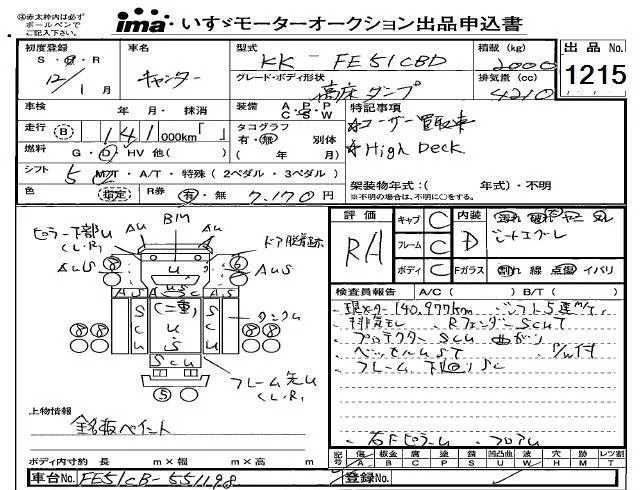 ㊟赤太枠内は必ず
ボールペンで
ご記入下さい。
ima いすゞモーターオークション出品申込書
初度登録 車名 型式 KK - FE51CBD 積載 (kg) 2000 出品 No.
S・Ⓗ・R 12/1月 キャンター グレード・ボディ形状 高床ダンプ 排気量 (cc) 4210 1215
車検 年・月・抹消 装備 A・P・P C・S・W 特記事項
走行 Ⓑ 141 000km「 」 タコグラフ 有・無 別体 ☆ユーザー買取車
燃料 G・D・HV 他( ) ( 年 月) ☆High Deck
シフト 5 M/T・A/T・特殊 (2ペダル・3ペダル)
色 指定 R券 有・無 7.170円 架装物年式:( 年式)・不明
※不明の場合は、不明に○をする。
評価 RA キャブ C 内装 D
シートエグレ
フレーム C
ボディ C Fガラス 割れ 線 点傷 イバリ
検査員報告 A/C( ) B/T( )
現メーター140.977km シフト5速
排気モレ RフェンダーScUT
プロテクターScU 曲がり
ベッセルUST
フレーム下回りSC
右FピラーU フロアU
BM
ピラー下部U
(L.R)
AU AU
ドア脱着跡
AUS AUS
AS ASC AS
ScU U (二重) U ScU
タンクU
ScU
フレーム先U
(L.R)
⑤
上物情報
銘板ペイント
ボディ内寸約 長 m×幅 m×高 m
記号 傷 A 板金 B 腐 C 塗 P 錆 S 凹凸曲 U 波 W 穴 H 跡 M レツ割 T
車台No. FE51CB-551198 登録No.